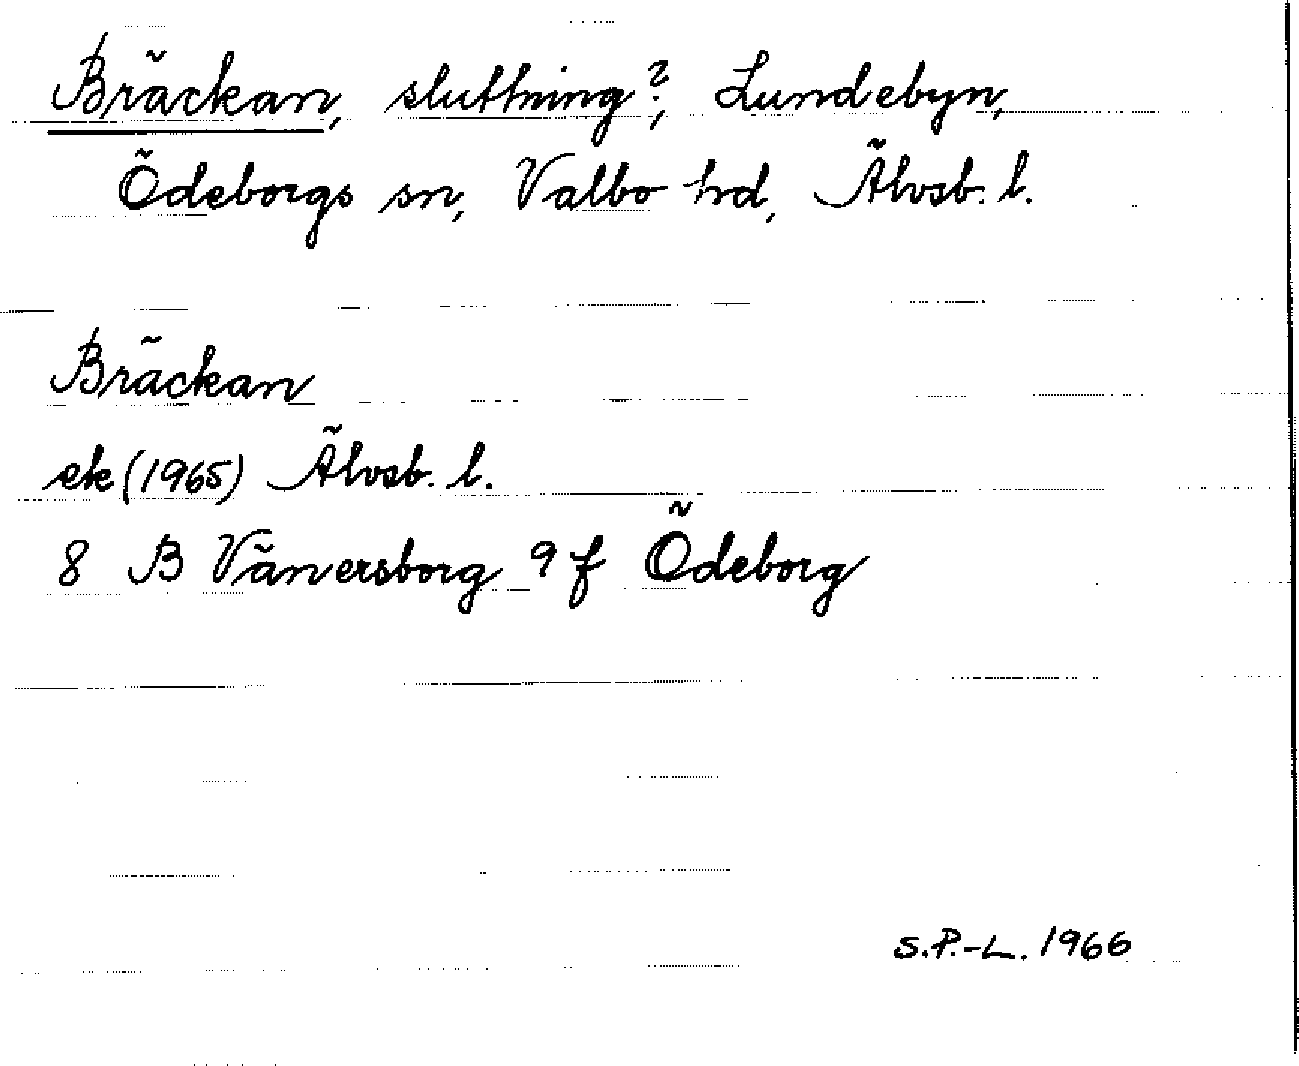 Bräckan, sluttning?, Lundebyn,
Ödeborgs sn, Valbo hd, Älvsb. l.
Bräckan
ek (1965) Älvsb. l.
8 B Vänersborg 9 f Ödeborg
S.P.-L. 1966